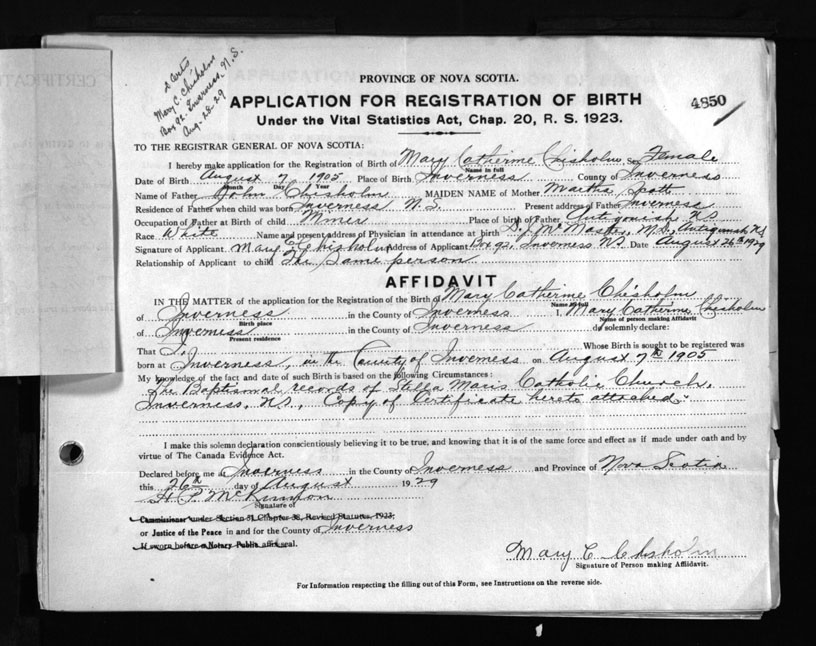 2 Certs
Mary C. Chisholm
Box 92. Inverness, N.S.
Aug-28-29
PROVINCE OF NOVA SCOTIA.
APPLICATION FOR REGISTRATION OF BIRTH
4850
Under the Vital Statistics Act, Chap. 20, R. S. 1923.
TO THE REGISTRAR GENERAL OF NOVA SCOTIA:
I hereby make application for the Registration of Birth of Mary Catherine Chisholm Sex Female
Name in full
Date of Birth August 7 1905 Place of Birth Inverness County of Inverness
Month Day Year
Name of Father John Chisholm MAIDEN NAME of Mother Martha
Residence of Father when child was born Inverness N.S. Present address of Father Inverness
Occupation of Father at Birth of child Miner Place of birth of Father Antigonish N.S.
Race White Name and present address of Physician in attendance at birth D. J. McMaster, M.D., Antigonish N.S.
Signature of Applicant Mary C. Chisholm Address of Applicant Box 92, Inverness N.S. Date August 26th 1929
Relationship of Applicant to child The Same person
AFFIDAVIT
IN THE MATTER of the application for the Registration of the Birth of Mary Catherine Chisholm
Name in full
of Inverness in the County of Inverness I, Mary Catherine Chisholm
Birth place Name of person making Affidavit
of Inverness in the County of Inverness do solemnly declare:
Present residence
That I Whose Birth is sought to be registered was
born at Inverness, in the County of Inverness on August 7th 1905
My knowledge of the fact and date of such Birth is based on the following Circumstances:
The Baptismal records of Stella Maris Catholic Church,
Inverness, N.S., Copy of Certificate hereto attached.
I make this solemn declaration conscientiously believing it to be true, and knowing that it is of the same force and effect as if made under oath and by
virtue of The Canada Evidence Act.
Declared before me at Inverness in the County of Inverness and Province of Nova Scotia
this 26th day of August 1929
H. P. McKinnon
Signature of
Commissioner under Section 31, Chapter 38, Revised Statutes, 1923,
or Justice of the Peace in and for the County of Inverness
If sworn before a Notary Public affix seal.
Mary C Chisholm
Signature of Person making Affidavit.
For Information respecting the filling out of this Form, see Instructions on the reverse side.